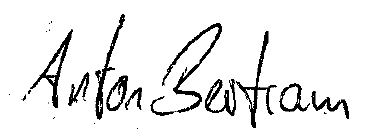 Anton Bertram